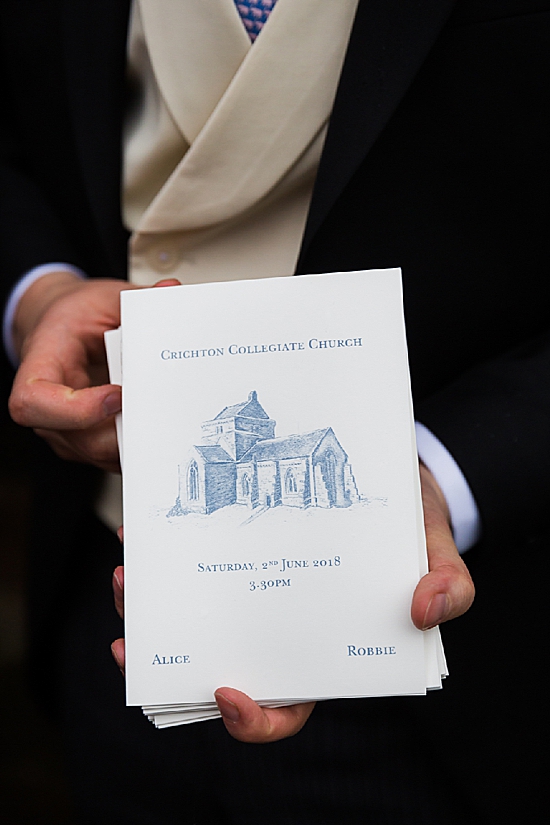 Crichton Collegiate Church
Saturday, 2nd June 2018
3.30pm
Alice Robbie